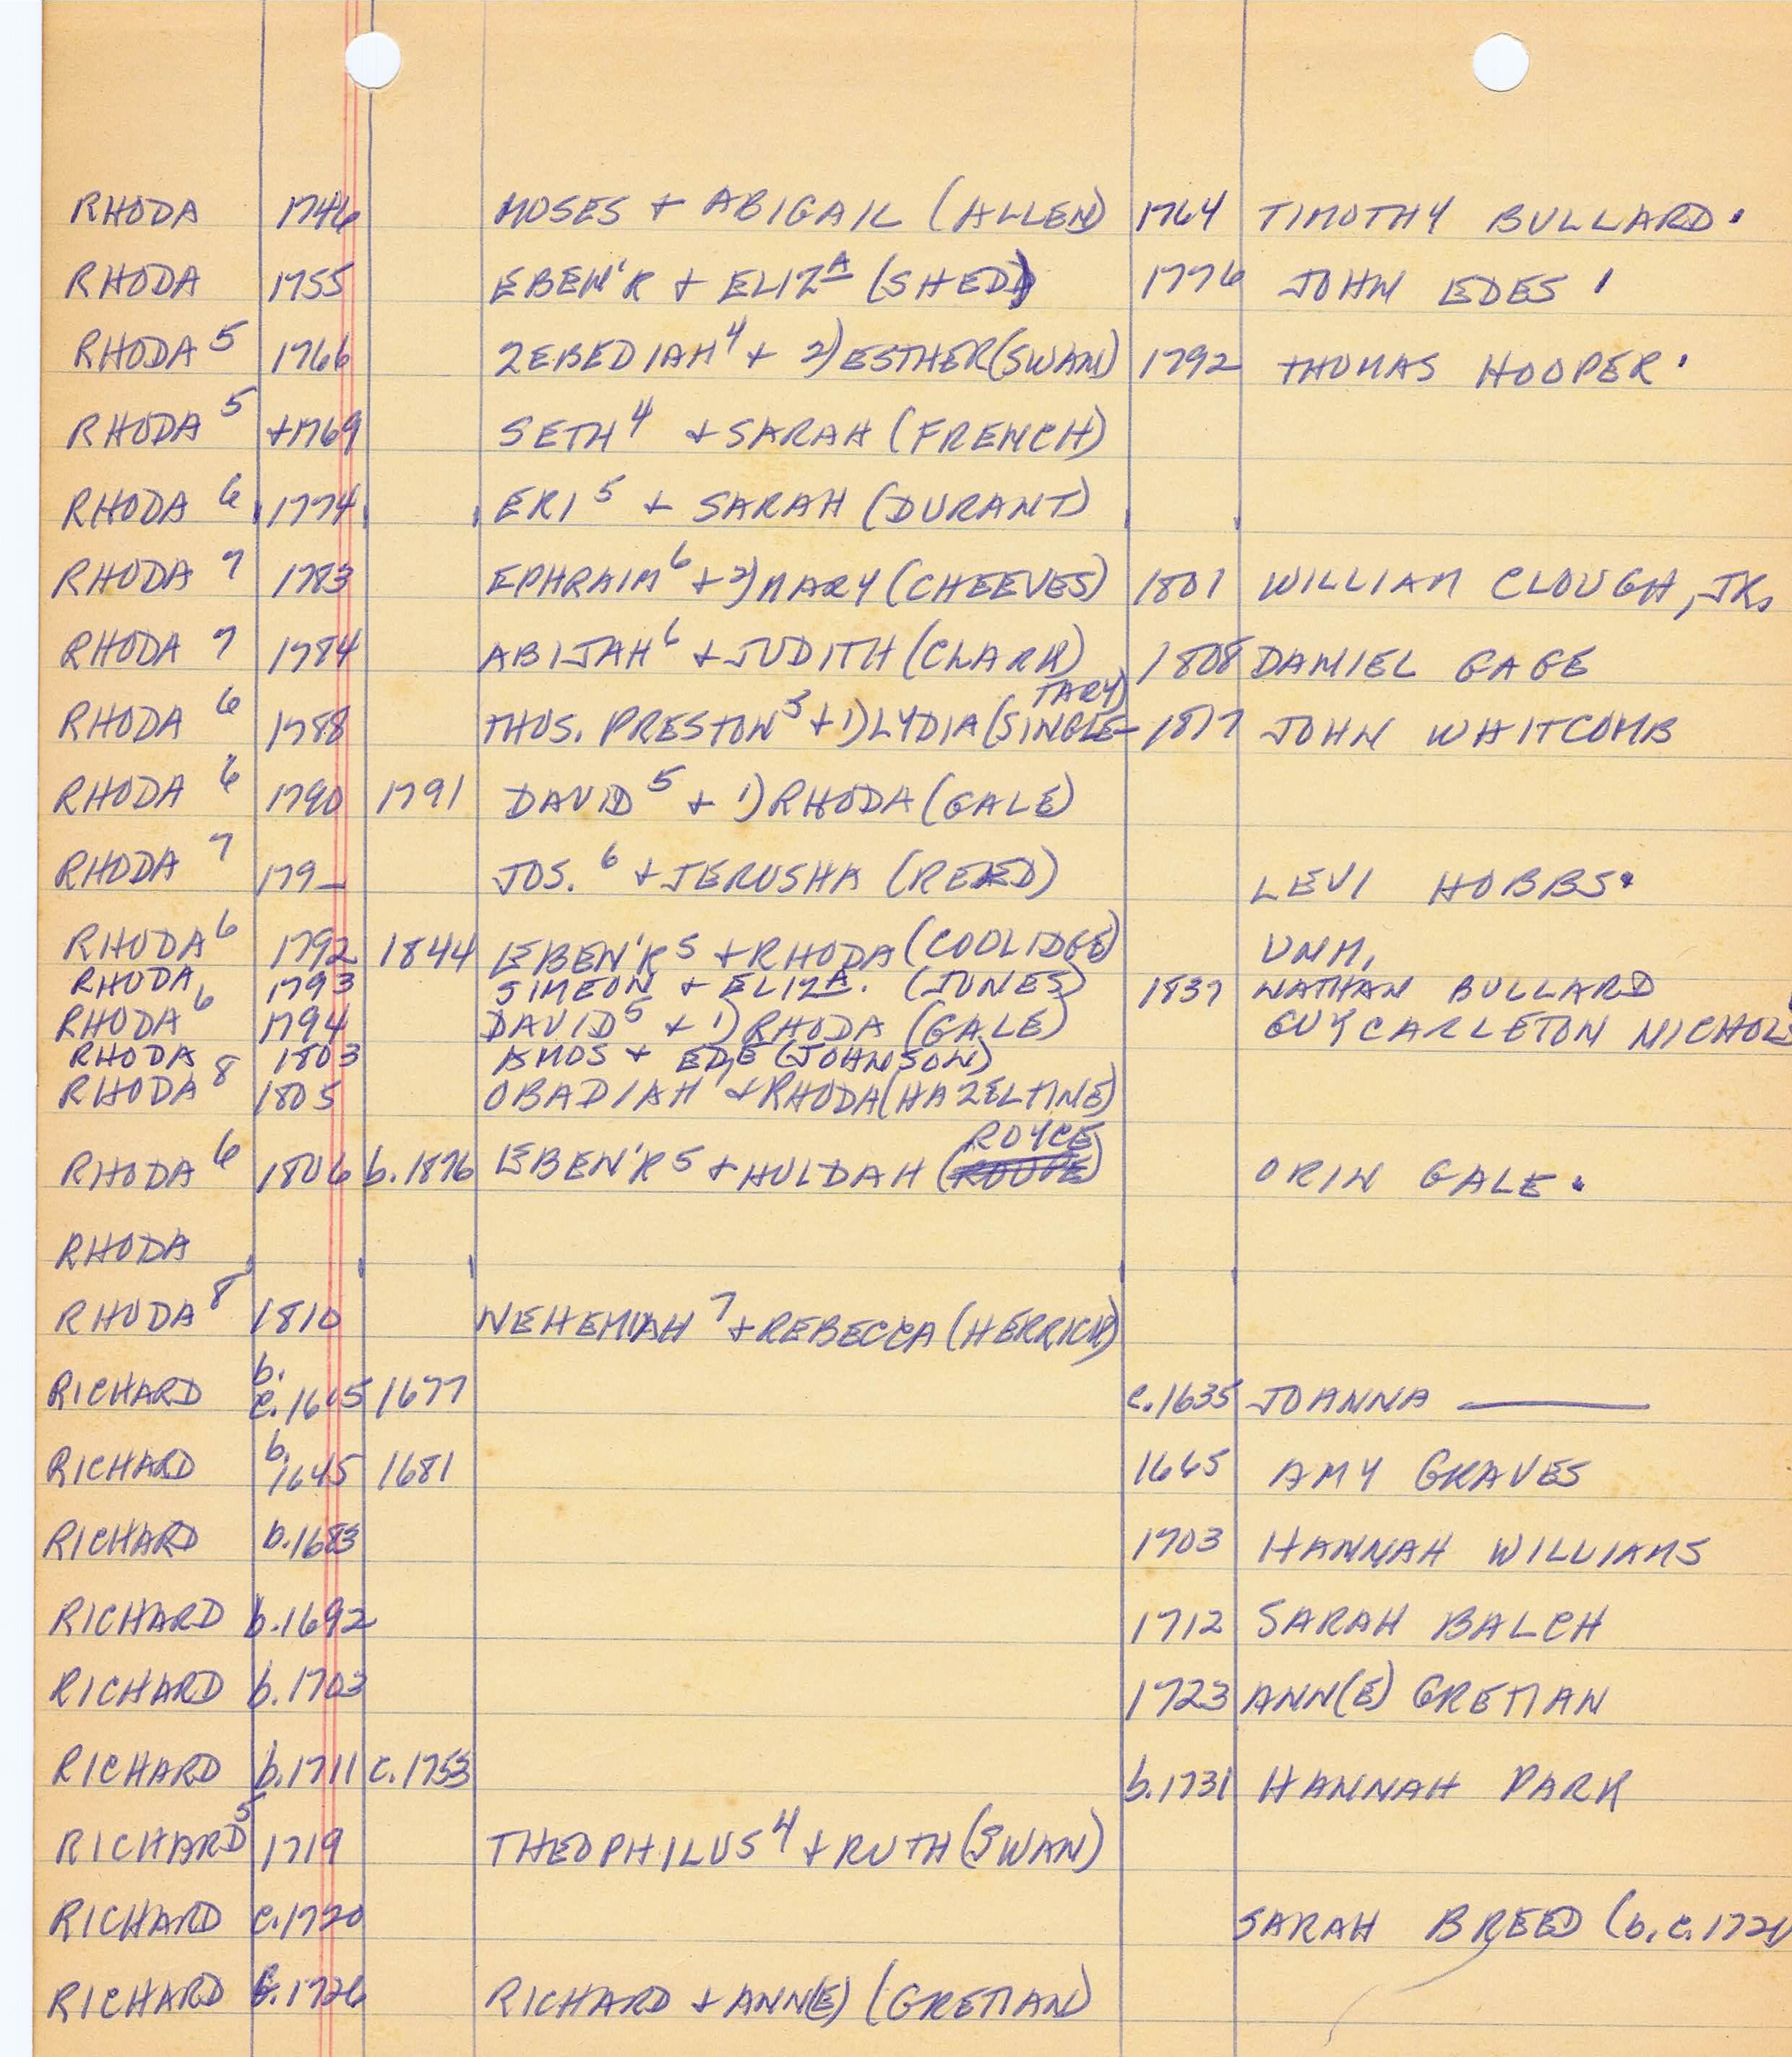 RHODA 1746 MOSES + ABIGAIL (ALLEN) 1764 TIMOTHY BULLARD.
RHODA 1755 EBEN'R + ELIZA (SHED) 1776 JOHN EDES
RHODA 5 1766 ZEBEDIAH 4 + 2) ESTHER (SWAN) 1792 THOMAS HOOPER.
RHODA 5 +1769 SETH 4 + SARAH (FRENCH)
RHODA 6 1774 ERI 5 + SARAH (DURANT)
RHODA 7 1783 EPHRAIM 6 + 2) MARY (CHEEVES) 1801 WILLIAM CLOUGH, JR.
RHODA 7 1784 ABIJAH 6 + JUDITH (CLARK) 1808 DANIEL GAGE
TARY)
RHODA 6 1788 THOS. PRESTON 3 + 1) LYDIA (SINGLE- 1817 JOHN WHITCOMB
RHODA 6 1790 1791 DAVID 5 + 1) RHODA (GALE)
RHODA 7 179_ JOS. 6 + JERUSHA (REED) LEVI HOBBS.
RHODA 6 1792 1844 EBEN'R 5 + RHODA (COOLIDGE) UNM.
RHODA 1793 SIMEON + ELIZA. (JONES) 1837 NATHAN BULLARD
RHODA 6 1794 DAVID 5 + 1) RHODA (GALE) GUY CARLETON NICHOLS
RHODA 1803 AMOS + EDE (JOHNSON)
RHODA 8 1805 OBADIAH 7 + RHODA (HAZELTINE)
ROYCE
RHODA 6 1806 b. 1876 EBEN'R 5 + HULDAH ( ) ORIN GALE.
RHODA
RHODA 8 1810 NEHEMIAH 7 + REBECCA (HERRICK)
RICHARD b. c. 1605 1677 c. 1635 JOANNA ———
RICHARD b. 1645 1681 1665 AMY GRAVES
RICHARD b. 1683 1703 HANNAH WILLIAMS
RICHARD b. 1692 1712 SARAH BALCH
RICHARD b. 1703 1723 ANN(E) GRETIAN
RICHARD b. 1711 c. 1753 b. 1731 HANNAH PARK
RICHARD 5 1719 THEOPHILUS 4 + RUTH (SWAN)
RICHARD c. 1720 SARAH BREED (b. c. 1721)
RICHARD 1726 RICHARD + ANN(E) (GRETIAN)